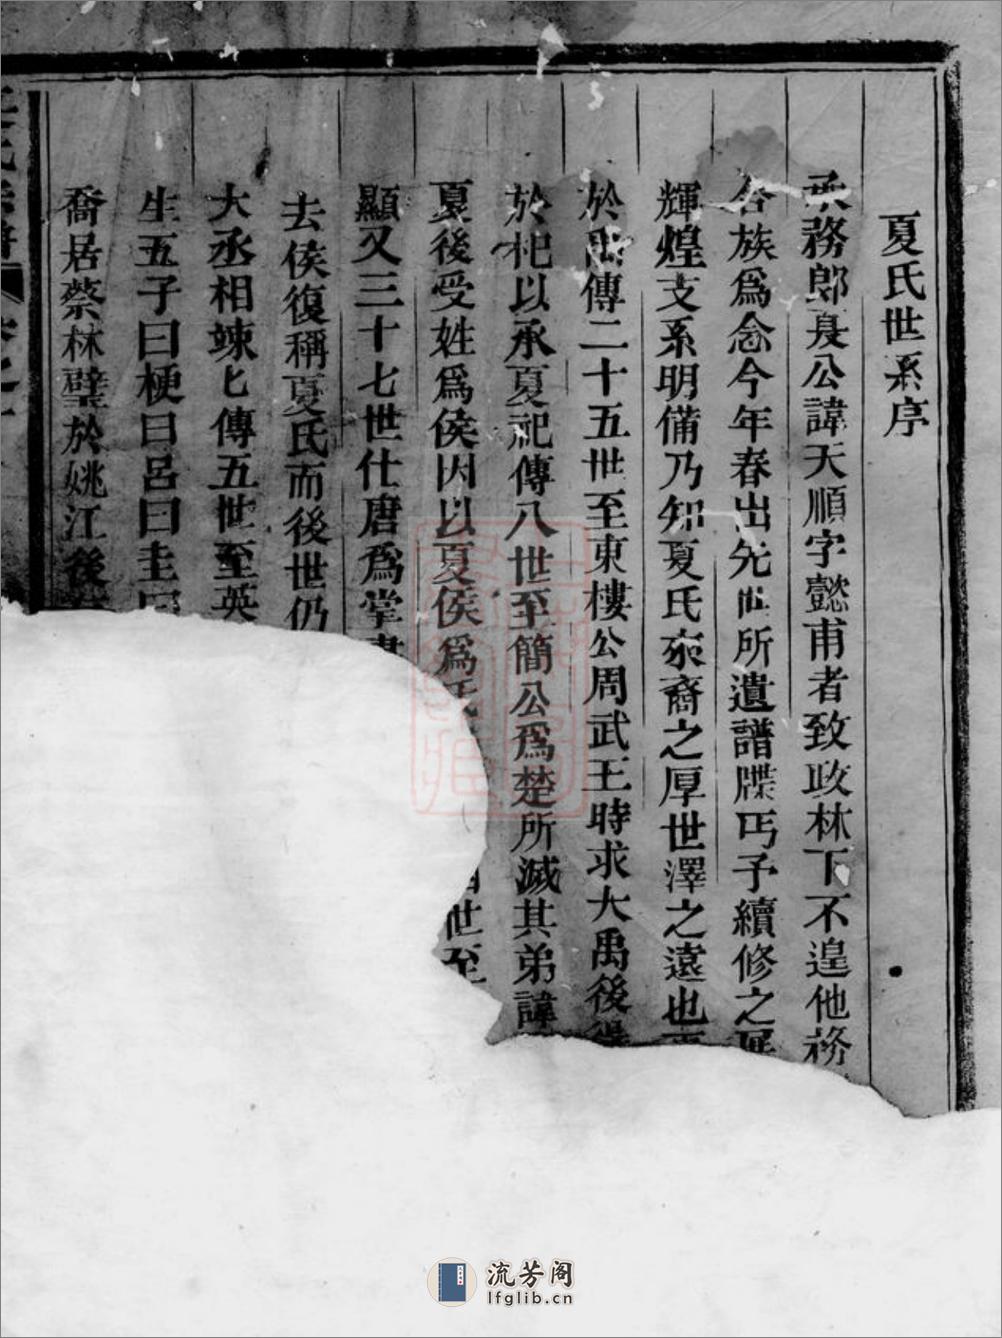 夏氏世系序
承務郎良公諱天順字懿甫者致政林下不遑他務
合族爲念今年春出先世所遺譜牒丐予續修之
輝煌支系明備乃知夏氏來裔之厚世澤之遠也
於禹傳二十五世至東樓公周武王時求大禹後
於杞以承夏祀傳八世至簡公爲楚所滅其弟諱
夏後受姓爲侯因以夏侯爲氏
世至
顯又三十七世仕唐爲掌書
去侯復稱夏氏而後世仍
大丞相竦七傳五世至英
生五子曰梗曰呂曰圭曰
喬居蔡林璧於姚江後
流芳阁
lfglib.cn